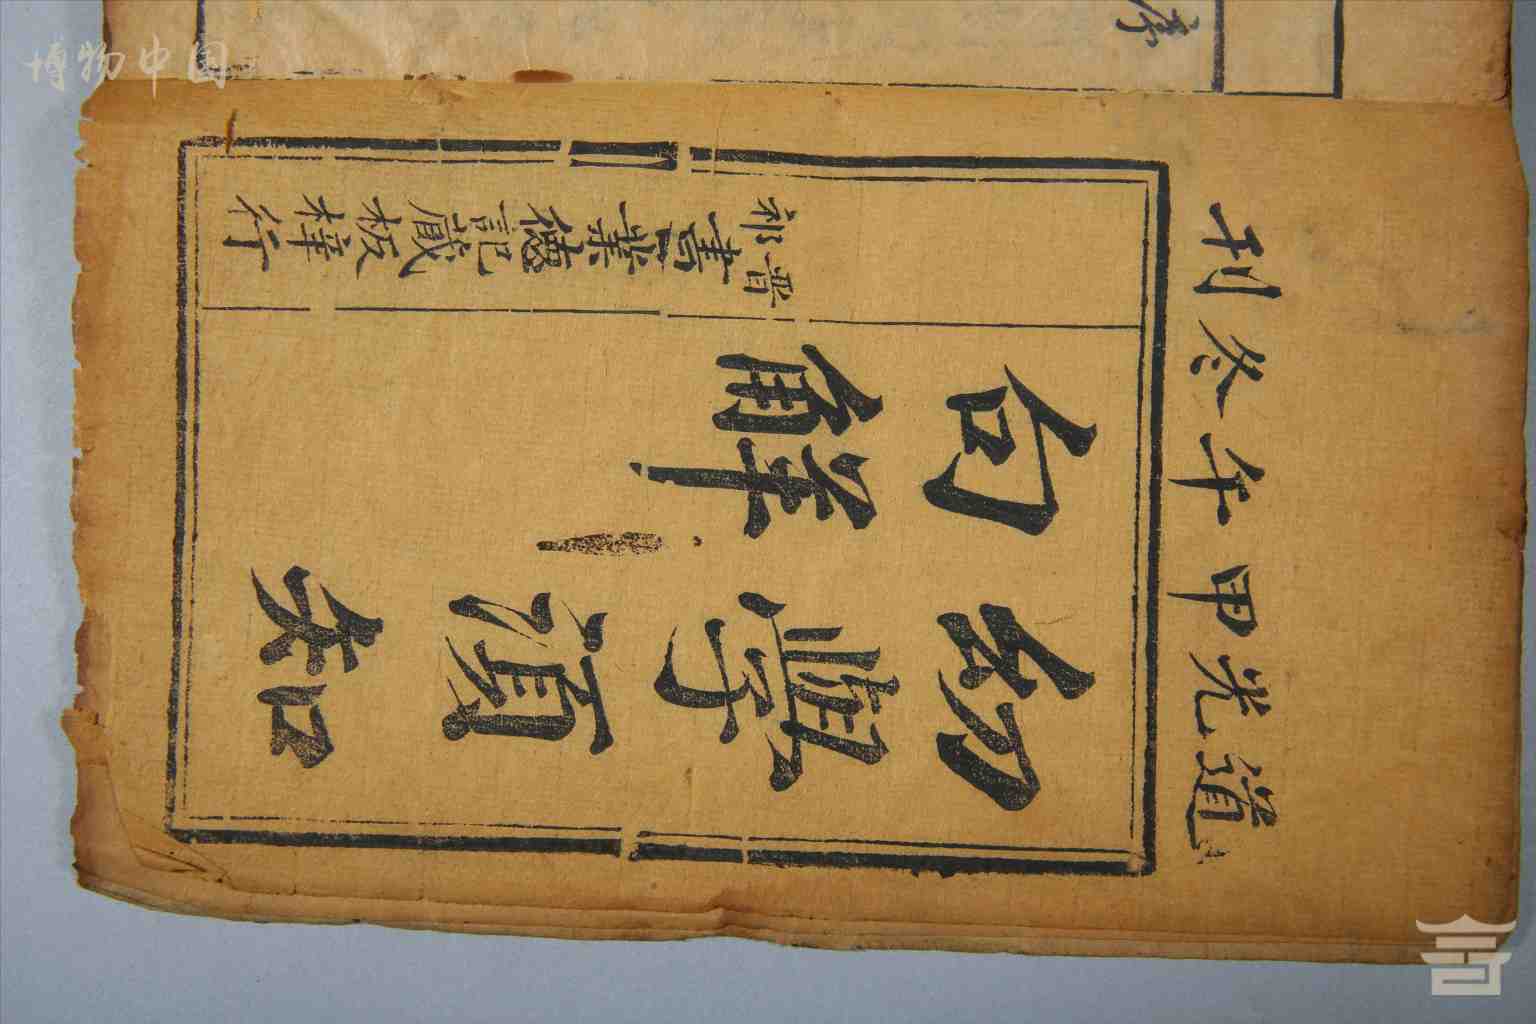 道光甲午冬刊
幼學須知
句解
晋祁
書業德記藏板梓行
序
博物中国